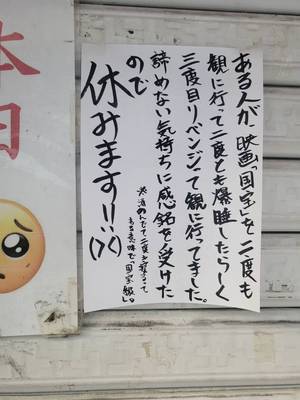 ある人が映画「国宝」を二度も
観に行って二度とも爆睡したらしく
三度目リベンジって観に行ってました。
諦めない気持ちに感銘を受けた
ので
休みます!!
ある意味で「国宝級」。
本日